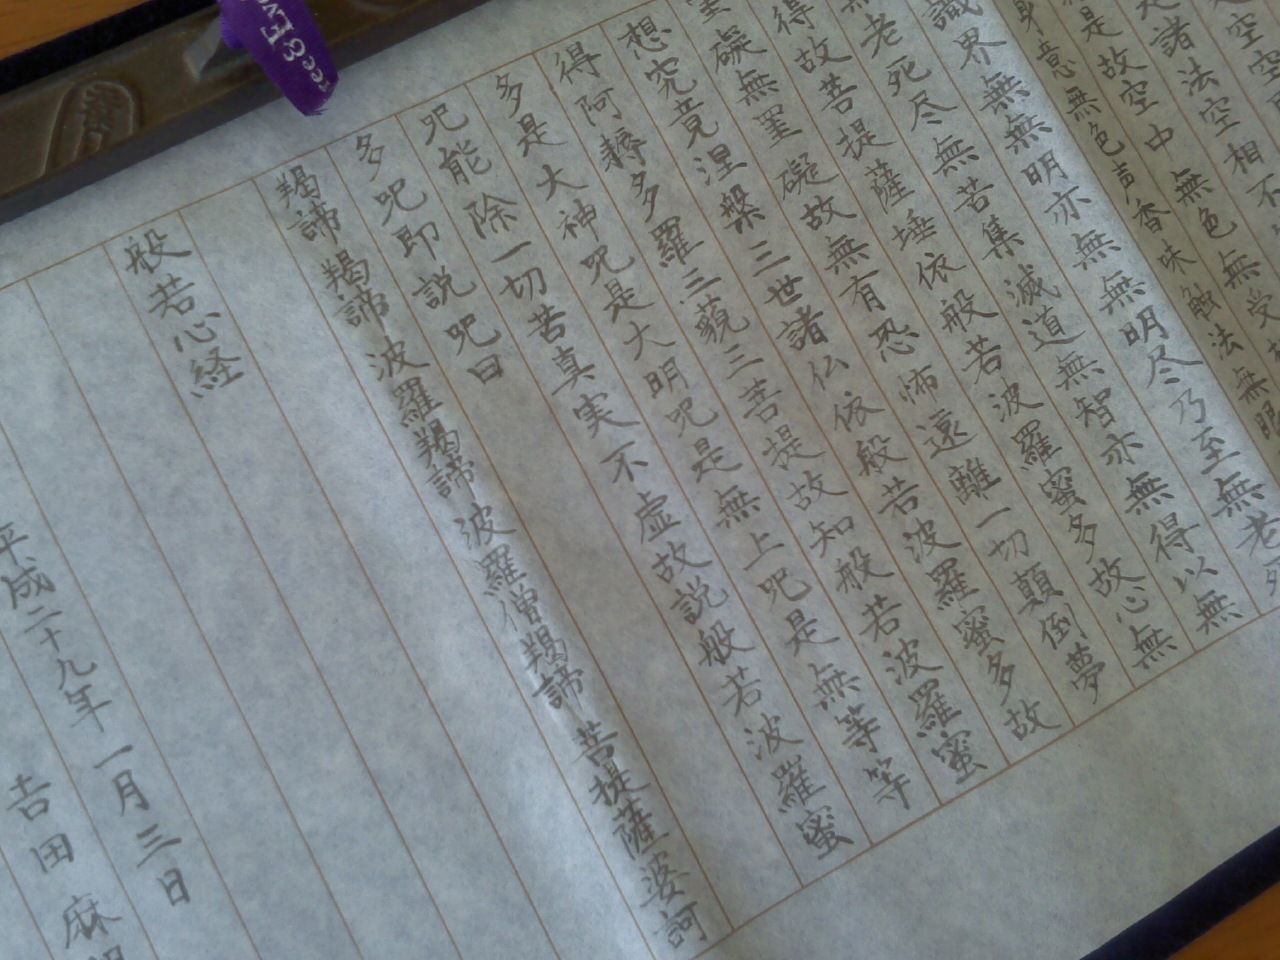 空空
是諸法空相不
是故空中無色無受
身意無色声香味触法無眼
識界無無明亦無無明尽乃至無老死
無老死尽無苦集滅道無智亦無得以無
得故菩提薩埵依般若波羅蜜多故心無
罣礙無罣礙故無有恐怖遠離一切顛倒夢
想究竟涅槃三世諸仏依般若波羅蜜多故
得阿耨多羅三藐三菩提故知般若波羅蜜
多是大神呪是大明呪是無上呪是無等等
呪能除一切苦真実不虚故説般若波羅蜜
多呪即説呪曰
羯諦羯諦波羅羯諦波羅僧羯諦菩提薩婆訶
般若心経
平成二十九年一月三日
吉田 麻